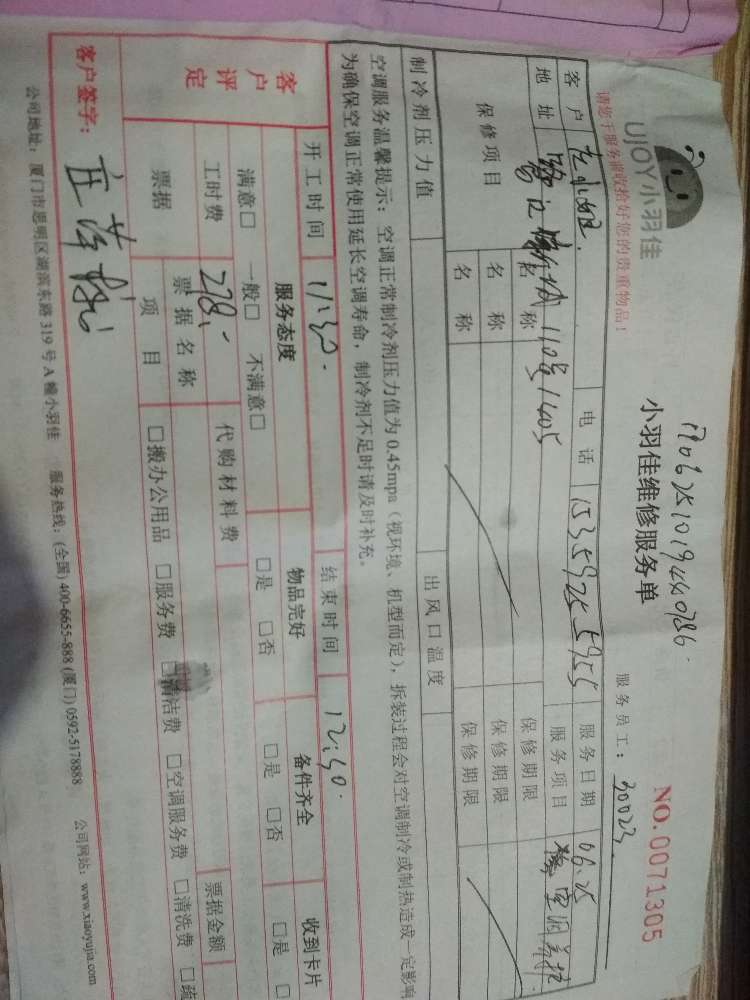 UJOY小羽佳
请您于服务前收拾好您的贵重物品！
小羽佳维修服务单
NO.0071305
服务员工：30023
客户 电话 服务日期 06.25
地址 110号1405 服务项目
保修项目 名称 保修期限
名称 保修期限
名称 保修期限
制冷剂压力值 出风口温度
空调服务温馨提示：空调正常制冷剂压力值为0.45mpa（视环境、机型而定），拆装过程会对空调制冷或制热造成一定影响
为确保空调正常使用延长空调寿命，制冷剂不足时请及时补充。
开工时间 11:30. 结束时间 12:40.
客户评定 服务态度 物品完好 备件齐全 收到卡片
满意□ 一般□ 不满意□ □是 □否 □是 □否 □是 □
工时费 228.- 代购材料费 票据金额
票据 票据名称
项目 □搬办公用品 □服务费 □清洁费 □空调服务费 □清洗费 □疏
客户签字：
公司地址：厦门市思明区湖滨东路319号A幢小羽佳 服务热线：(全国) 400-6655-888 (厦门) 0592-5178888 公司网站：www.xiaoyujia.com